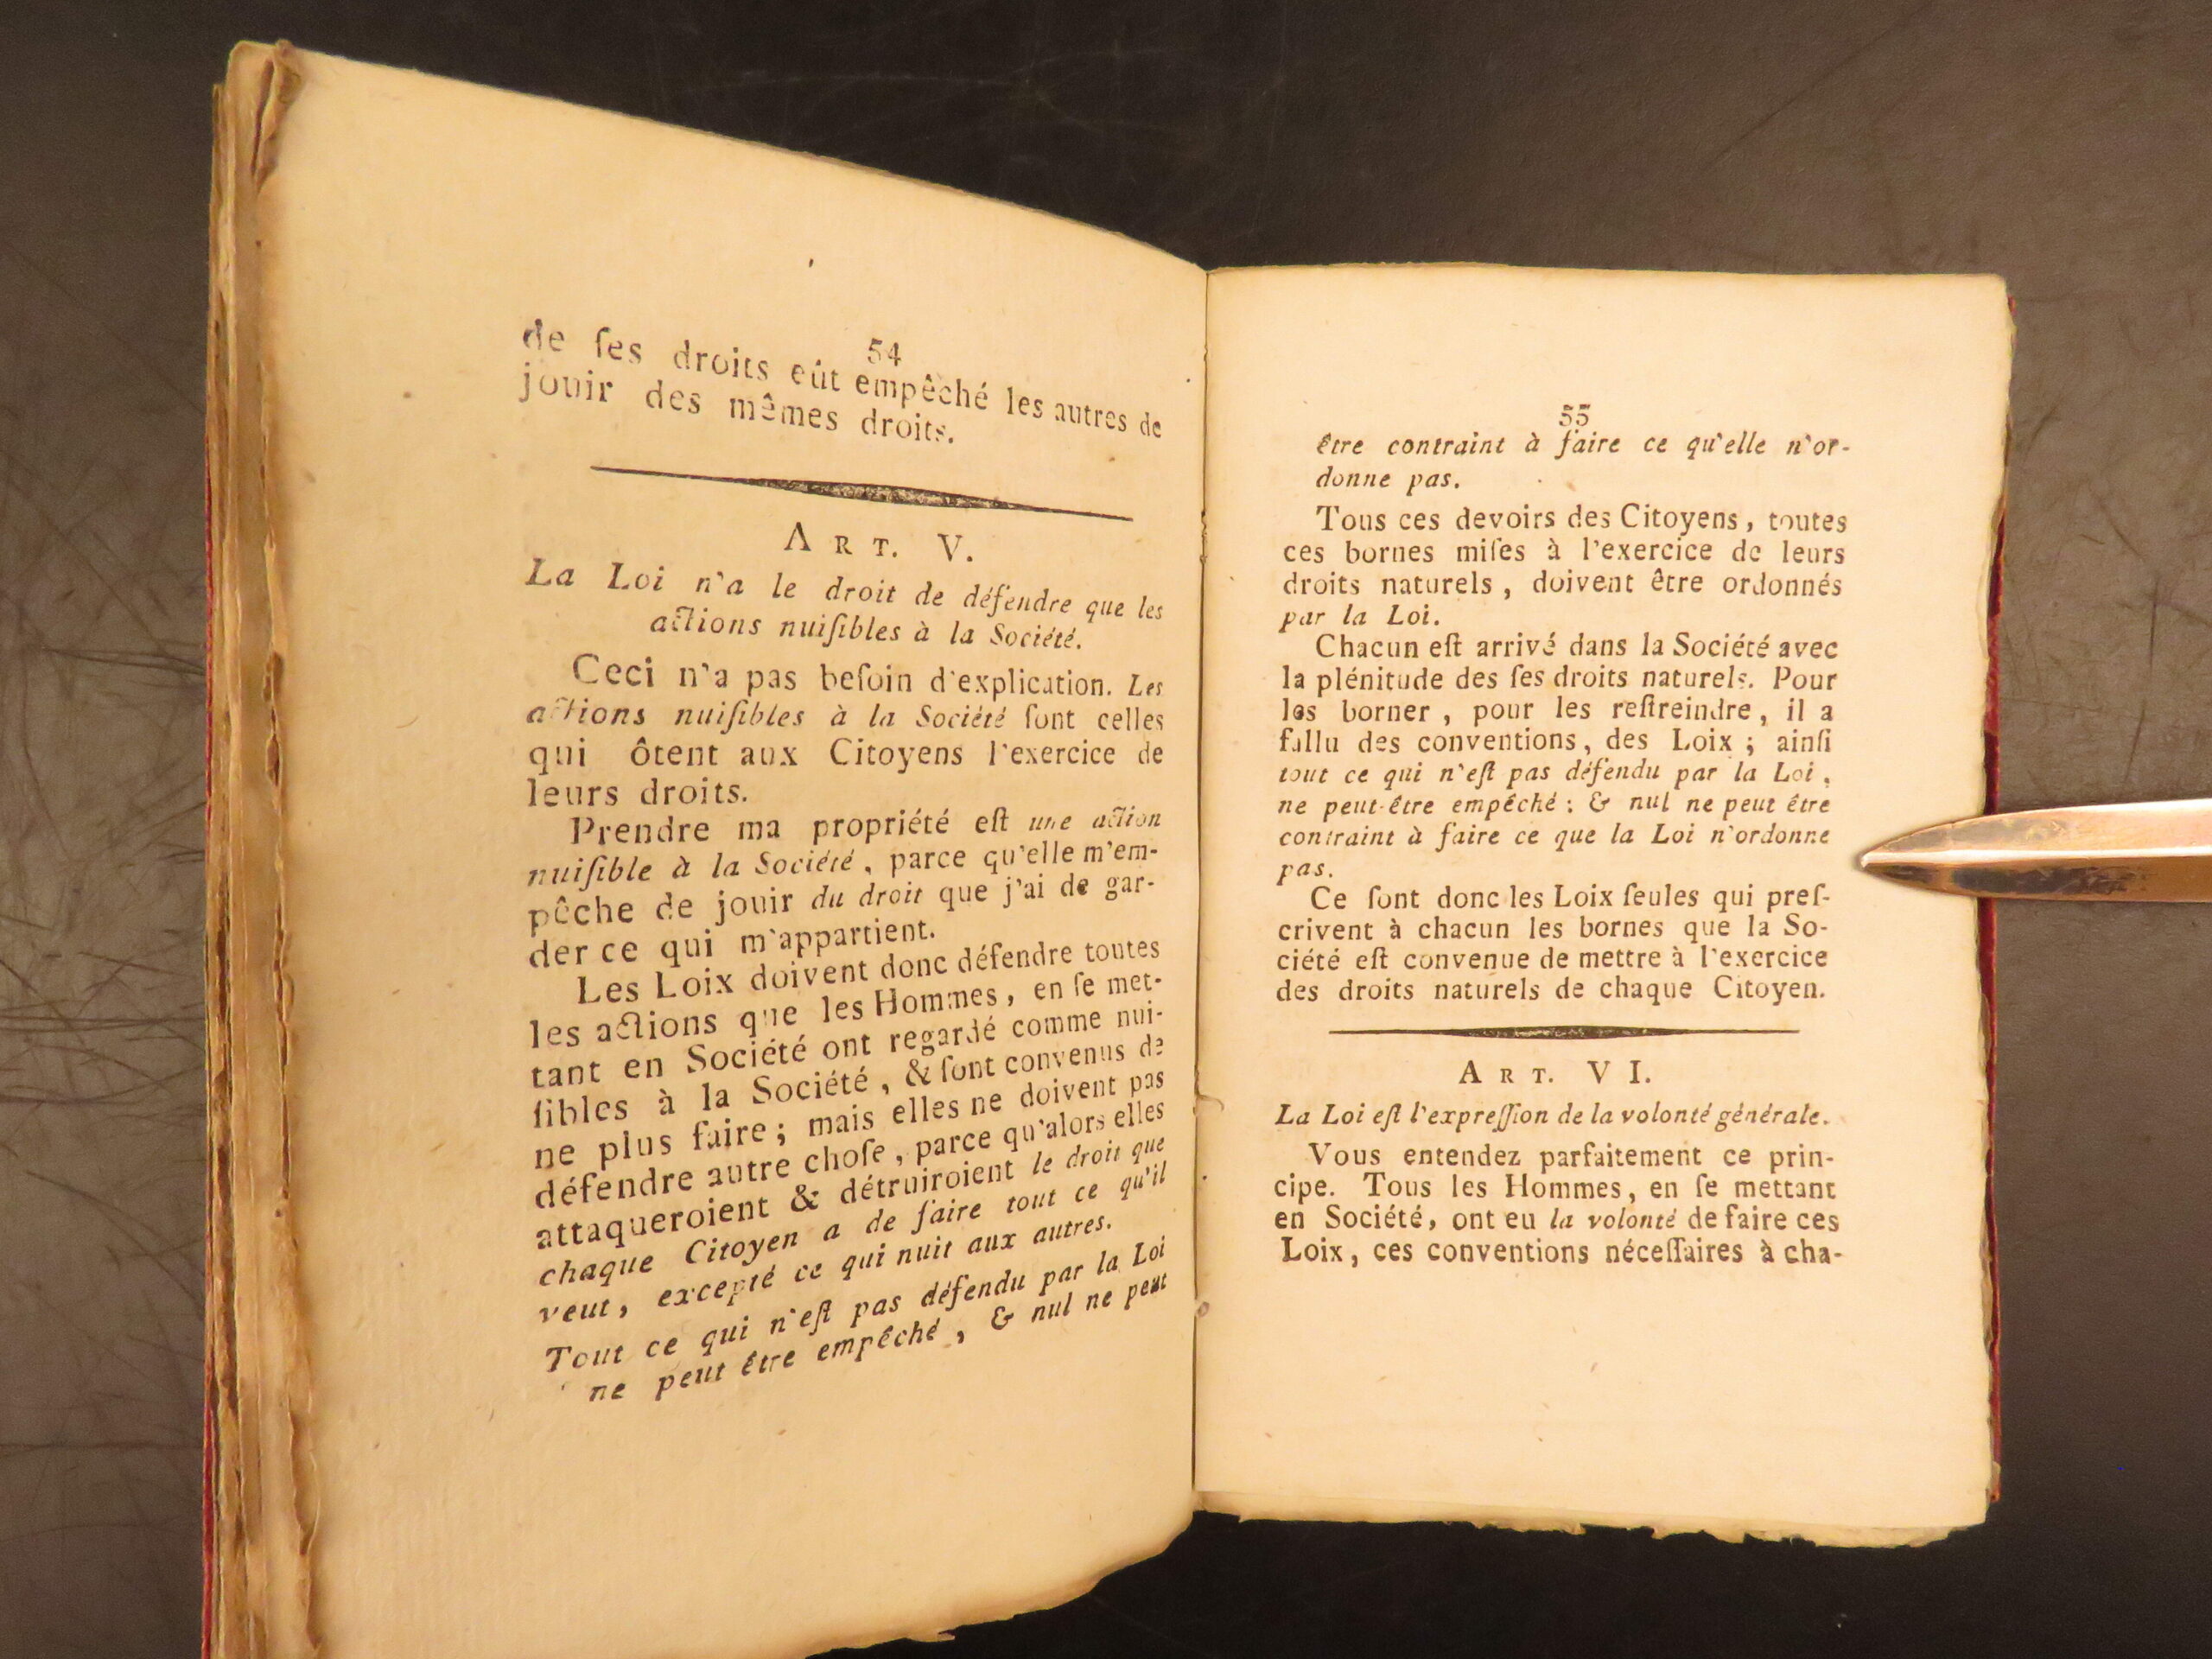 54
de ſes droits eût empêché les autres de
jouir des mêmes droits.
ART. V.
La Loi n'a le droit de défendre que les
actions nuiſibles à la Société.
Ceci n'a pas beſoin d'explication. Les
actions nuiſibles à la Société ſont celles
qui ôtent aux Citoyens l'exercice de
leurs droits.
Prendre ma propriété eſt une action
nuiſible à la Société, parce qu'elle m'em-
pêche de jouir du droit que j'ai de gar-
der ce qui m'appartient.
Les Loix doivent donc défendre toutes
les actions que les Hommes, en ſe met-
tant en Société ont regardé comme nui-
ſibles à la Société, & ſont convenus de
ne plus faire; mais elles ne doivent pas
défendre autre choſe, parce qu'alors elles
attaqueroient & détruiroient le droit que
chaque Citoyen a de faire tout ce qu'il
veut, excepté ce qui nuit aux autres.
Tout ce qui n'eſt pas défendu par la Loi
ne peut être empêché, & nul ne peut
55
être contraint à faire ce qu'elle n'or-
donne pas.
Tous ces devoirs des Citoyens, toutes
ces bornes miſes à l'exercice de leurs
droits naturels, doivent être ordonnés
par la Loi.
Chacun eſt arrivé dans la Société avec
la plénitude des ſes droits naturels. Pour
les borner, pour les reſtreindre, il a
fallu des conventions, des Loix; ainſi
tout ce qui n'eſt pas défendu par la Loi,
ne peut-être empêché: & nul ne peut être
contraint à faire ce que la Loi n'ordonne
pas.
Ce ſont donc les Loix ſeules qui preſ-
crivent à chacun les bornes que la So-
ciété eſt convenue de mettre à l'exercice
des droits naturels de chaque Citoyen.
ART. VI.
La Loi eſt l'expreſſion de la volonté générale.
Vous entendez parfaitement ce prin-
cipe. Tous les Hommes, en ſe mettant
en Société, ont eu la volonté de faire ces
Loix, ces conventions néceſſaires à cha-